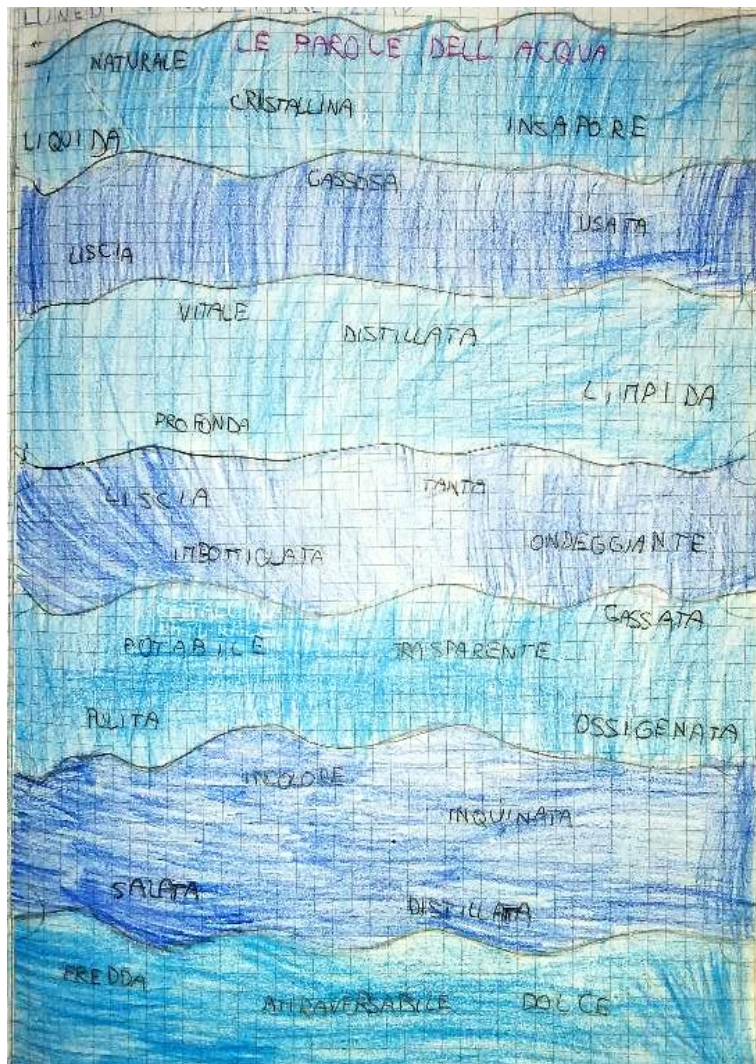 LUNEDÌ
LE PAROLE DELL'ACQUA
NATURALE
CRISTALLINA
INSAPORE
LIQUIDA
GASSOSA
USATA
LISCIA
VITALE
DISTILLATA
LIMPIDA
PROFONDA
LISCIA
TANTA
ONDEGGIANTE
IMBOTTIGLIATA
GASSATA
POTABILE TRASPARENTE
PULITA OSSIGENATA
INCOLORE
INQUINATA
SALATA
DISTILLATA
FREDDA
ATTRAVERSABILE DOLCE